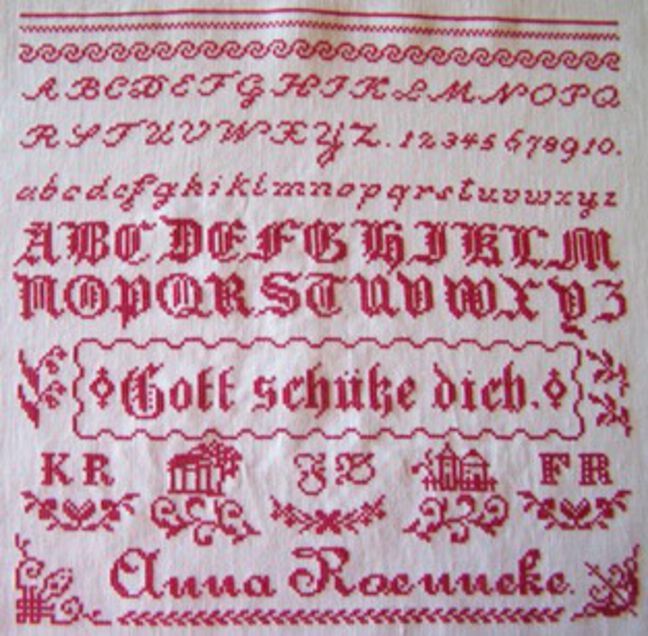 A B C D E F G H I K L M N O P Q
R S T U V W X Y Z. 1 2 3 4 5 6 7 8 9 10.
a b c d e f g h i k l m n o p q r s t u v w x y z
A B C D E F G H I K L M
N O P Q R S T U V W X Y Z
Gott schütze dich.
K R J B F R
Anna Roenneke.